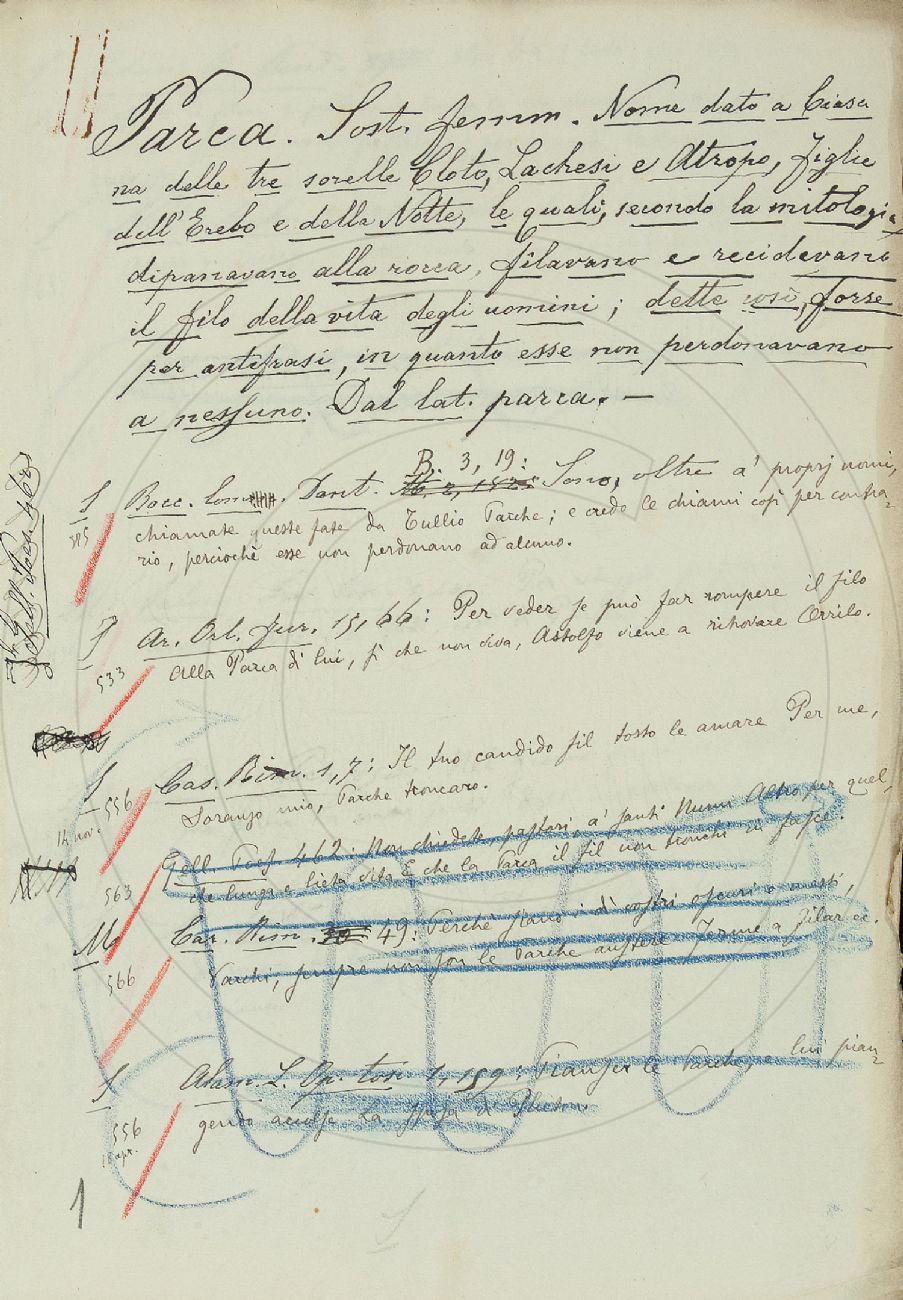 Parca. Sost. femm. Nome dato a Ciascu
na delle tre sorelle Cloto, Lachesi e Atropo, figlie
dell'Erebo e della Notte, le quali, secondo la mitologia
dipanavano alla rocca, filavano e recidevano
il filo della vita degli uomini; dette così, forse
per antifrasi, in quanto esse non perdonavano
a nessuno. Dal lat. parca. —
B. 3, 19:
S Bocc. Com. Dant. Sono, oltre a' proprj nomi,
585 chiamate queste fate da Tullio Parche; e credo le chiami così per contra-
rio, perciochè esse non perdonano ad alcuno.
Ar. Orl. fur. 15, 66: Per veder se può far rompere il filo
533 Alla Parca di lui, sì che non viva, Astolfo viene a ritrovare Orrilo.
S Cas. Rim. 1, 7: Il tuo candido fil tosto le amare Per me,
556 Soranzo mio, Parche troncaro.
14 nov.
Gell. Poes. 462: Non chiedete, pastori, a' santi Numi Altro per quel,
563 che lunga e lieta vita E che la Parca il fil non tronchi
M Car. Rim. 49: Perchè siano i dì nostri oscuri o mesti,
566 Varchi, sempre non son le Parche austere Ferme a filar ec.
S Alam. L. Op. tosc. 1, 159: Pianser le Parche, e lui pian-
556 gendo accolse La sposa di Pluton
apr.
1
S